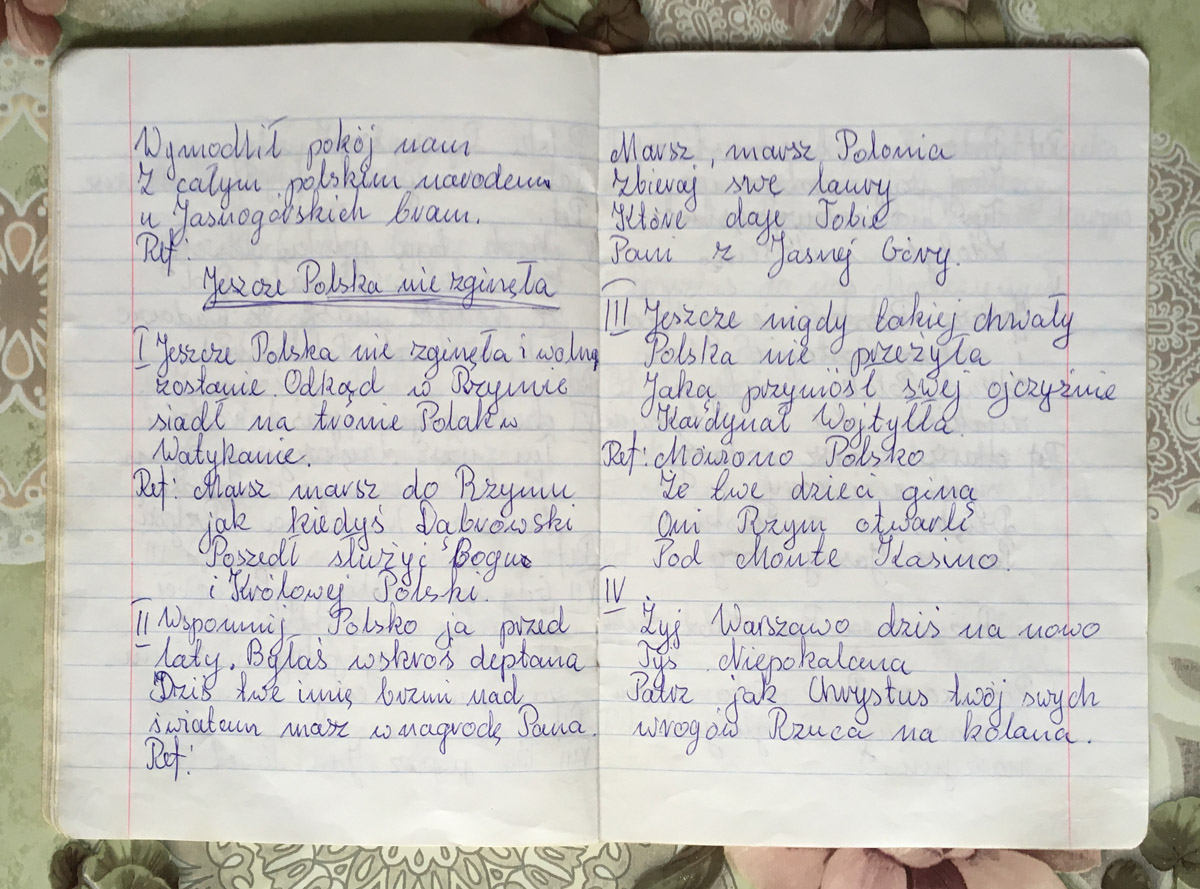 Wymodlił pokój nam
Z całym polskim narodem
u Jasnogórskich bram.
Ref:
Jeszcze Polska nie zginęła
I Jeszcze Polska nie zginęła i wolną
zostanie. Odkąd w Rzymie
siadł na tronie Polak w
Watykanie.
Ref: Marsz marsz do Rzymu
jak kiedyś Dąbrowski
Poszedł służyć Bogu
i Królowej Polski.
II Wspomnij Polsko ja przed
laty. Byłaś wskroś deptana
Dziś twe imię brzmi nad
światem masz w nagrodę Pana.
Ref:
Marsz, marsz Polonia
Zbieraj swe laury
Które daje Tobie
Pani z Jasnej Góry.
III Jeszcze nigdy takiej chwały
Polska nie przeżyła
Jaką przyniósł swej ojczyźnie
Kardynał Wojtyłła.
Ref: Mówiono Polsko
Że twe dzieci giną
Oni Rzym otwarli
Pod Monte Kasino.
IV.
Żyj Warszawo dziś na nowo
Tyś Niepokalana
Patrz jak Chrystus twój swych
wrogów Rzuca na kolana.